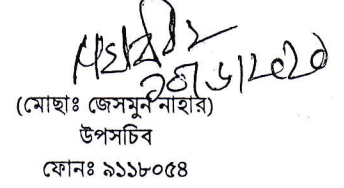 (মোছাঃ জেসমুন নাহার)
উপসচিব
ফোনঃ ৯১১৮০৫৪